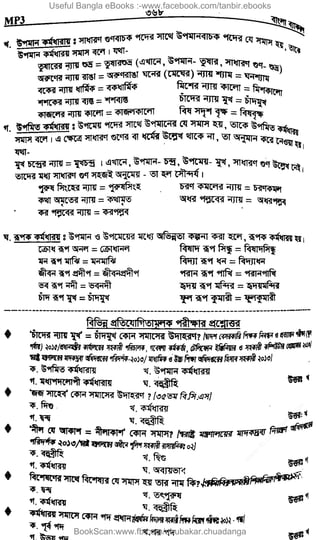 Useful Bangla eBooks :www.facebook.com/tanbir.ebooks
MP3 ৩৬৮ বাংলা ব্যাকরণ
খ. উপমান কর্মধারয় : সাধারণ গুণবাচক পদের সাথে উপমানবাচক পদের যে সমাস হয়, তাকে
উপমান কর্মধারয় সমাস বলে। যথা-
তুষারের ন্যায় শুভ্র = তুষারশুভ্র (এখানে, উপমান- তুষার, সাধারণ গুণ- শুভ্র)
অরুণের ন্যায় রাঙা = অরুণরাঙা ঘনের (মেঘের) ন্যায় শ্যাম = ঘনশ্যাম
বকের ন্যায় ধার্মিক = বকধার্মিক মিশের ন্যায় কালো = মিশকালো
শশকের ন্যায় ব্যস্ত = শশব্যস্ত চাঁদের ন্যায় মুখ = চাঁদমুখ
কাজলের ন্যায় কালো = কাজলকালো
গ. উপমিত কর্মধারয় : উপমেয় পদের সাথে উপমানের যে সমাস হয়, তাকে উপমিত কর্মধারয়
সমাস বলে। এ ক্ষেত্রে সাধারণ গুণের বা ধর্মের উল্লেখ থাকে না, তা অনুমান করে নেওয়া হয়।
যথা-
মুখ চন্দ্রের ন্যায় = মুখচন্দ্র । এখানে, উপমান- চন্দ্র, উপমেয়- মুখ, সাধারণ গুণ উল্লেখ নেই।
তাদের মধ্যে সাধারণ গুণ সহজেই অনুমেয় - তা হল সৌন্দর্য।
পুরুষ সিংহের ন্যায় = পুরুষসিংহ চরণ কমলের ন্যায় = চরণকমল
কথা অমৃতের ন্যায় = কথামৃত অধর পল্লবের ন্যায় = অধরপল্লব
কর পল্লবের ন্যায় = করপল্লব
ঘ. রূপক কর্মধারয় : উপমান ও উপমেয়ের মধ্যে অভিন্নতা কল্পনা করা হলে, রূপক কর্মধারয় হয়।
ক্রোধ রূপ অনল = ক্রোধানল বিষাদ রূপ সিন্ধু = বিষাদসিন্ধু
মন রূপ মাঝি = মনমাঝি বিদ্যা রূপ ধন = বিদ্যাধন
জীবন রূপ প্রদীপ = জীবনপ্রদীপ পরান রূপ পাখি = পরানপাখি
ভব রূপ নদী = ভবনদী হৃদয় রূপ মন্দির = হৃদয়মন্দির
চাঁদ রূপ মুখ = চাঁদমুখ ফুল রূপ কুমারী = ফুলকুমারী
বিভিন্ন প্রতিযোগিতামূলক পরীক্ষার প্রশ্নোত্তর
♦ 'চাঁদের ন্যায় মুখ' = চাঁদমুখ কোন সমাসের উদাহরণ?
ক. উপমিত কর্মধারয় খ. উপমান কর্মধারয়
গ. মধ্যপদলোপী কর্মধারয় ঘ. বহুব্রীহি
♦
ক. দ্বিগু খ. কর্মধারয়
গ. দ্বন্দ্ব ঘ. বহুব্রীহি
♦ 'নীল যে আকাশ = নীলাকাশ' কোন সমাস?
ক. বহুব্রীহি খ. দ্বিগু
গ. কর্মধারয় ঘ. অব্যয়ীভাব
♦ বিশেষণের সাথে বিশেষ্যের যে সমাস হয় তার নাম কি?
ক. দ্বন্দ্ব খ. তৎপুরুষ
গ. কর্মধারয় ঘ. বহুব্রীহি
♦ কর্মধারয় সমাসে কোন পদ প্রধান
ক. পূর্ব পদ
BookScan:www.facebook.com/abubakar.chuadanga